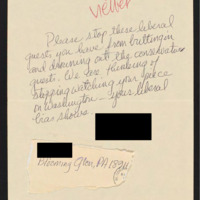 viewer
Please stop these liberal
guests you have from butting in
and drowning out the conservative
guests. We are thinking of
stopping watching your piece
on Washington — your liberal
bias shows.
Blooming Glen, PA 18911